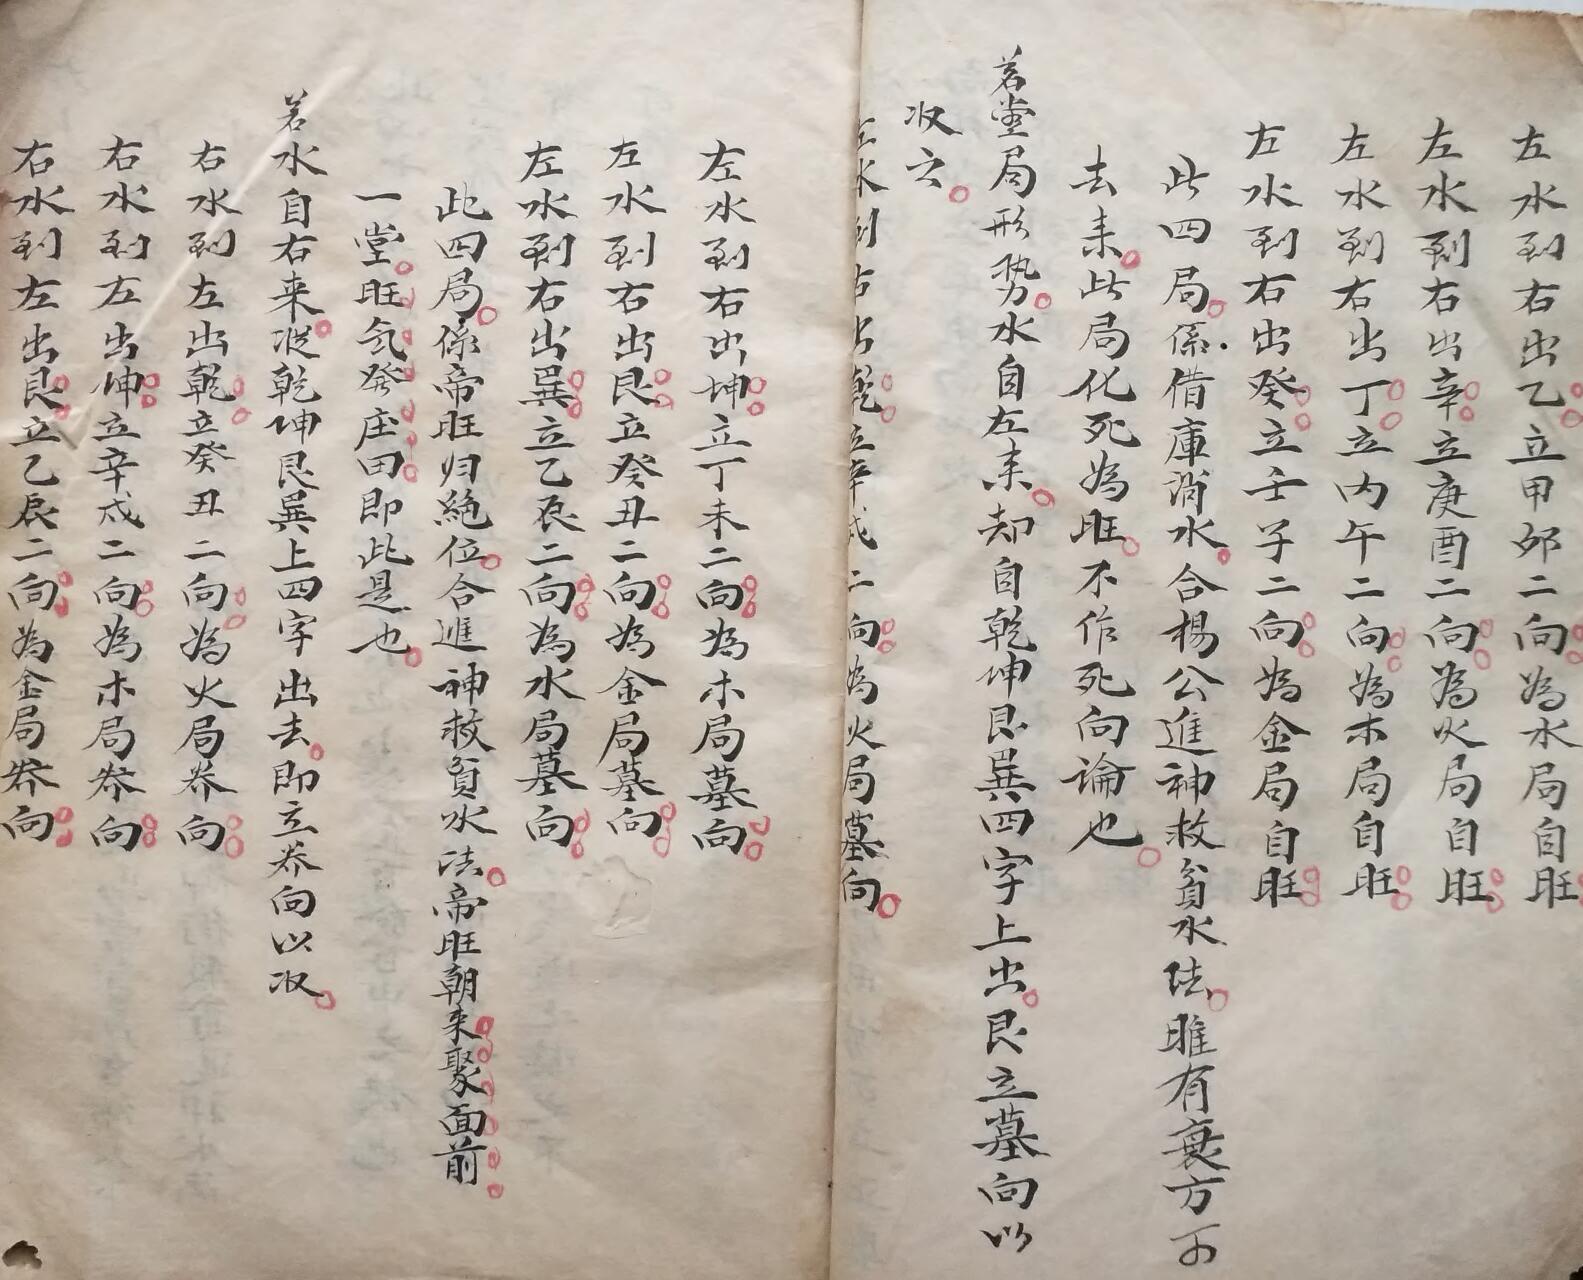 左水到右出乙立甲卯二向為水局自旺
左水到右出辛立庚酉二向為火局自旺
左水到右出丁立內午二向為木局自旺
左水到右出癸立壬子二向為金局自旺
此四局係借庫消水合楊公進神救貧水法雎有衰方可
去来此局化死為旺不作死向論也
若堂局形势水自左来却自乾坤艮巽四字上出艮立墓向以
収之
左水到右出乾立辛戌二向為火局墓向
左水到右出坤立丁未二向為木局墓向
左水到右出艮立癸丑二向為金局墓向
左水到右出巽立乙辰二向為水局墓向
此四局係帝旺归絶位合進神救貧水法帝旺朝来聚面前
一堂旺气發庄田即此是也
若水自右来從乾坤艮巽上四字出去即立养向以収
右水到左出乾立癸丑二向為火局养向
右水到左出坤立辛戌二向為木局养向
右水到左出艮立乙辰二向為金局养向